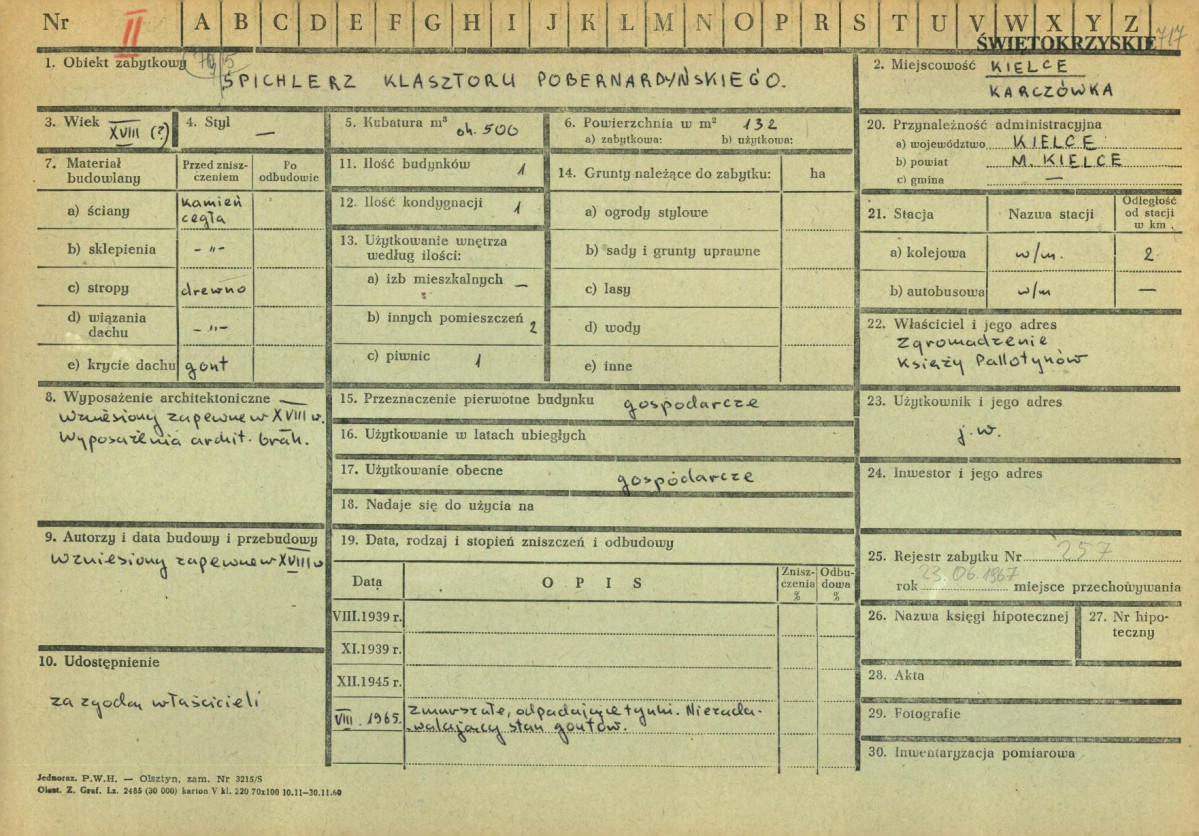 Nr II A B C D E F G H I J K L M N O P R S T U V W X Y Z
ŚWIĘTOKRZYSKIE 717
1. Obiekt zabytkowy
SPICHLERZ KLASZTORU POBERNARDYŃSKIEGO.
2. Miejscowość KIELCE
KARCZÓWKA
3. Wiek XVIII (?)
4. Styl —
5. Kubatura m³ ok. 500
6. Powierzchnia w m² 132
a) zabytkowa: b) użytkowa:
7. Materiał budowlany
Przed zniszczeniem
Po odbudowie
a) ściany kamień cegła
b) sklepienia –"–
c) stropy drewno
d) wiązania dachu –"–
e) krycie dachu gont
8. Wyposażenie architektoniczne —
Wzniesiony zapewne w XVIII w.
Wyposażenia archit. brak.
9. Autorzy i data budowy i przebudowy
Wzniesiony zapewne w XVIII w
10. Udostępnienie
za zgodą właścicieli
11. Ilość budynków 1
12. Ilość kondygnacji 1
13. Użytkowanie wnętrza
według ilości:
a) izb mieszkalnych —
b) innych pomieszczeń 2
c) piwnic 1
14. Grunty należące do zabytku: ha
a) ogrody stylowe
b) sady i grunty uprawne
c) lasy
d) wody
e) inne
15. Przeznaczenie pierwotne budynku gospodarcze
16. Użytkowanie w latach ubiegłych
17. Użytkowanie obecne gospodarcze
18. Nadaje się do użycia na
19. Data, rodzaj i stopień zniszczeń i odbudowy
Data OPIS Zniszczenia % Odbudowa %
VIII.1939 r.
XI.1939 r.
XII.1945 r.
VIII. 1965. Zmurszałe, odpadające tynki. Niezada-
walający stan gontów.
20. Przynależność administracyjna
a) województwo KIELCE
b) powiat M. KIELCE
c) gmina —
21. Stacja Nazwa stacji Odległość od stacji w km.
a) kolejowa w/m. 2
b) autobusowa w/m —
22. Właściciel i jego adres
Zgromadzenie
Księży Pallotynów
23. Użytkownik i jego adres
j.w.
24. Inwestor i jego adres
25. Rejestr zabytku Nr 257
rok 23.06.1967 miejsce przechowywania
26. Nazwa księgi hipotecznej
27. Nr hipo-
teczny
28. Akta
29. Fotografie
30. Inwentaryzacja pomiarowa
Jednoraz. P.W.H. — Olsztyn, zam. Nr 3215/S
Olszt. Z. Graf. Lz. 2485 (30 000) karton V kl. 220 70x100 10.11—30.11.60